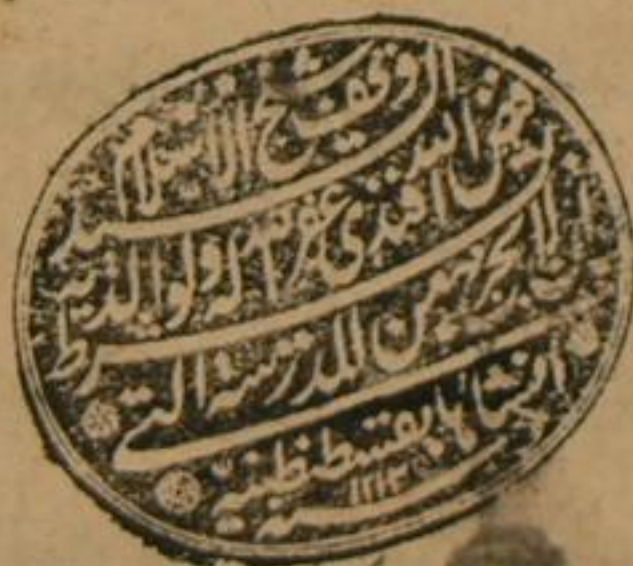 وقف شيخ الاسلام السيد
فيض الله افندي غفر الله له ولوالديه
بشرط ان لا يخرج من المدرسة التي
انشاها بقسطنطنية
سنة ١١١٢